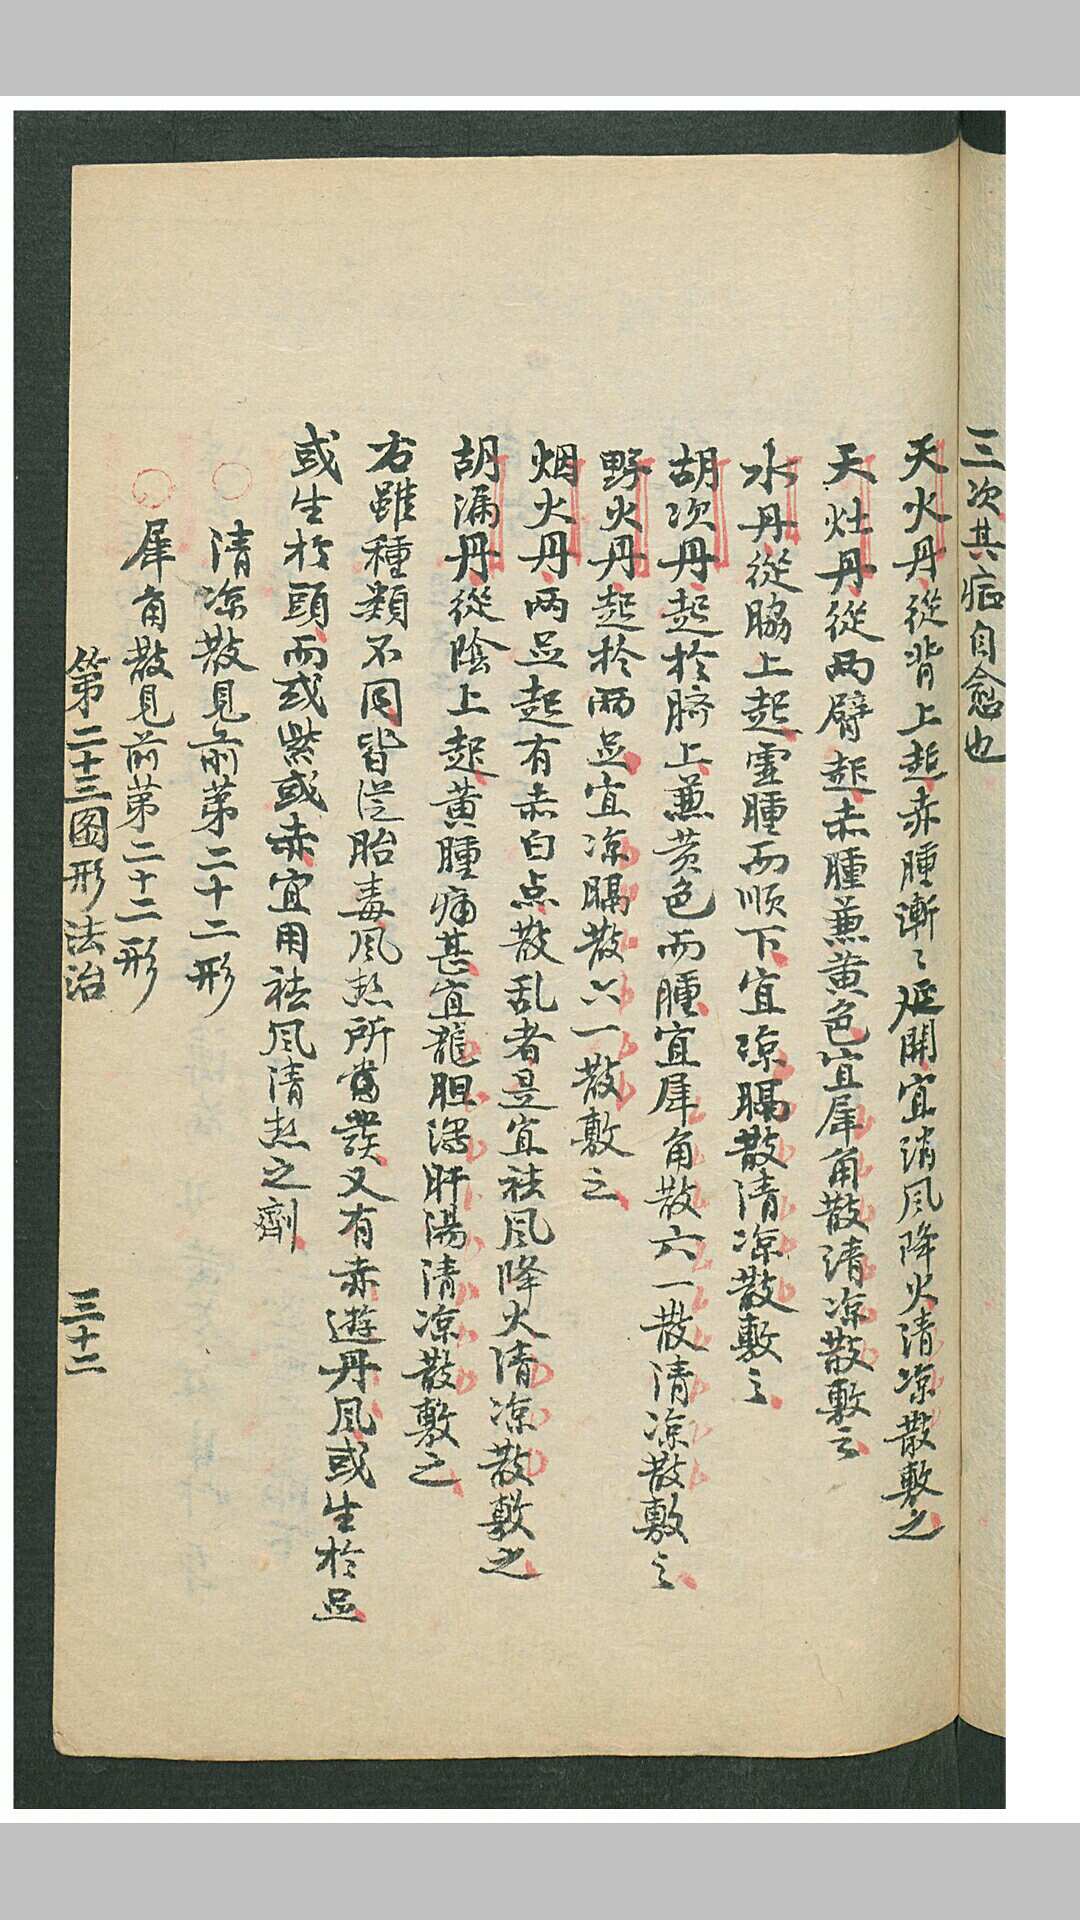 三次其症自愈也
天火丹從背上起赤腫漸〻延開宜消風降火清凉散敷之
天灶丹從两臂起赤腫兼黄色宜犀角散清凉散敷之
水丹從脇上起虚腫而順下宜凉膈散清凉散敷之
胡次丹起於臍上兼黄色而腫宜犀角散六一散清凉散敷之
野火丹起於两足宜凉膈散六一散敷之
烟火丹两足起有赤白点散乱者是宜祛風降火清凉散敷之
胡漏丹從陰上起黄腫痛甚宜龍胆瀉肝湯清凉散敷之
右雖種類不同皆從胎毒風热所當發又有赤遊丹風或生於足
或生於頭而或紫或赤宜用祛風清热之劑
清凉散見前第二十二形
犀角散見前第二十二形
第二十三图形法治 三十二